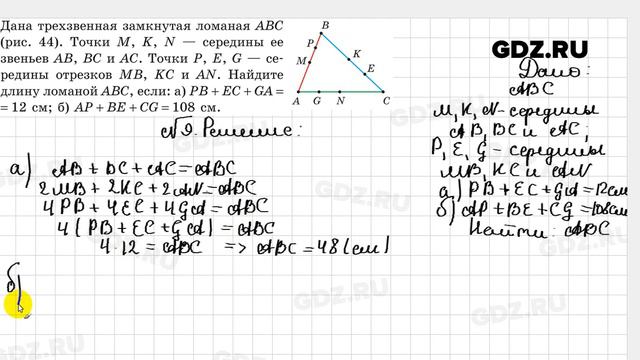 Дана трехзвенная замкнутая ломаная ABC
(рис. 44). Точки M, K, N — середины ее
звеньев AB, BC и AC. Точки P, E, G — се-
редины отрезков MB, KC и AN. Найдите
длину ломаной ABC, если: а) PB + EC + GA =
= 12 см; б) AP + BE + CG = 108 см.
B
P
M
K
E
A G N C
GDZ.RU
Дано:
ABC
M, K, N - середины
AB, BC и AC;
P, E, G - середины
MB, KC и AN
а) PB + EC + GA = 12 см
б) AP + BE + CG = 108 см
Найти: ABC
№9. Решение:
а) AB + BC + AC = ABC
2MB + 2KC + 2AN = ABC
4PB + 4EC + 4GA = ABC
4(PB + EC + GA) = ABC
4·12 = ABC => ABC = 48 (см)
б)
GDZ.RU
GDZ.RU
GDZ.RU
GDZ.RU